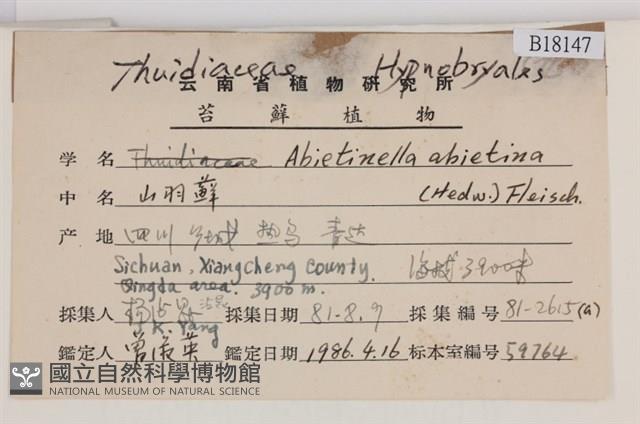 B18147
Thuidiaceae Hypnobryales
云南省植物研究所
苔蘚植物
学名 Thuidiaceae Abietinella abietina
中名 山羽蘚 (Hedw.) Fleisch.
产地 四川 乡城 热乌 青达
Sichuan, Xiangcheng County. 海拔 3900米
Qingda area. 3900 m.
採集人 採集日期 81-8.9 採集編号 81-2615(a)
K. Yang
鑑定人 曾淑英 鑑定日期 1986.4.16 标本室編号 59764
國立自然科學博物館
NATIONAL MUSEUM OF NATURAL SCIENCE